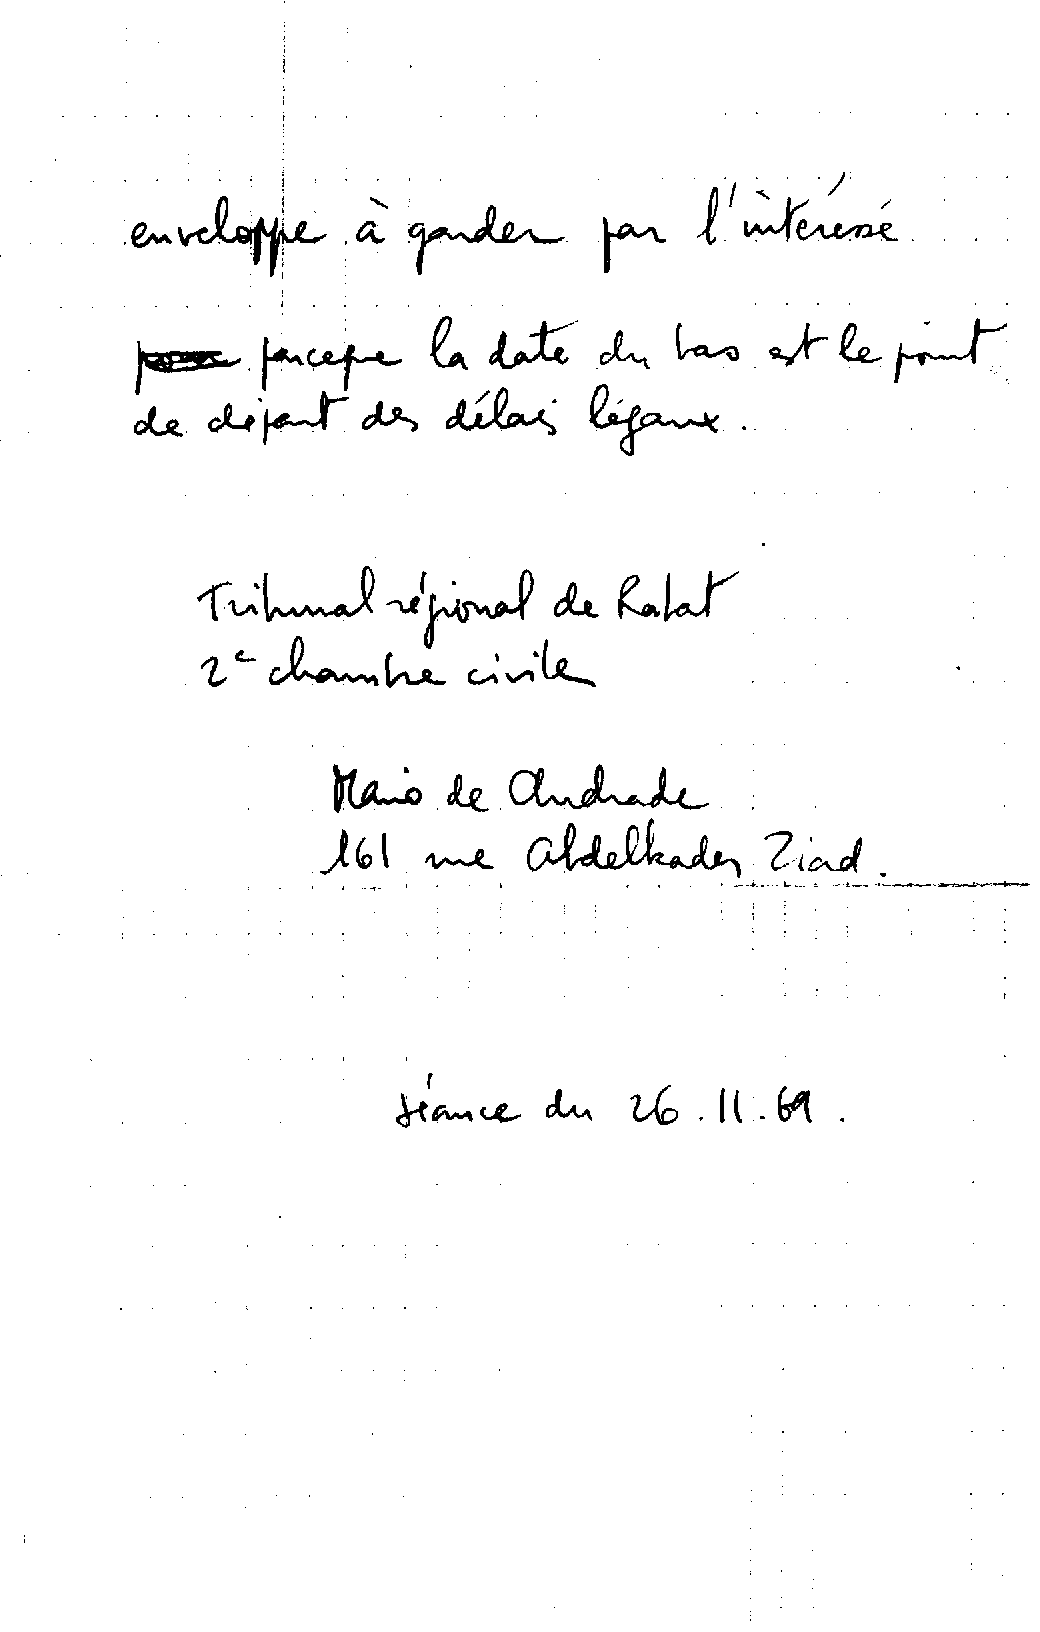 enveloppe à garder par l'intéressé
parceque la date du bas est le point
de départ des délais légaux.
Tribunal régional de Rabat
2e chambre civile
Mario de Andrade
161 rue Abdelkader Ziad.
séance du 26.11.69.